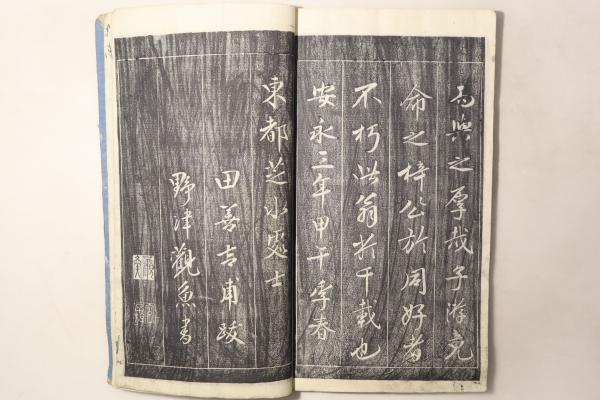 而與之厚哉子游兄
命之梓公於同好者
不朽此翁於千載也
安永三年甲午季春
東都芝水處士
田善吉甫跋
野津觀魚書